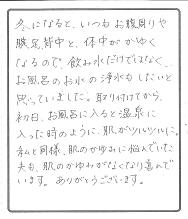 冬になると、いつもお腹周りや
腰足背中と、体中がかゆく
なるので、飲み水だけでなく、
お風呂のお水の浄水もしたいと
思っていました。取り付けてから、
初日、お風呂に入ると温泉に
入った時のように、肌がツルツルに。
私と同様、肌のかゆみに悩んでいた
夫も、肌のかゆみがなくなり喜んで
います。ありがとうございます。